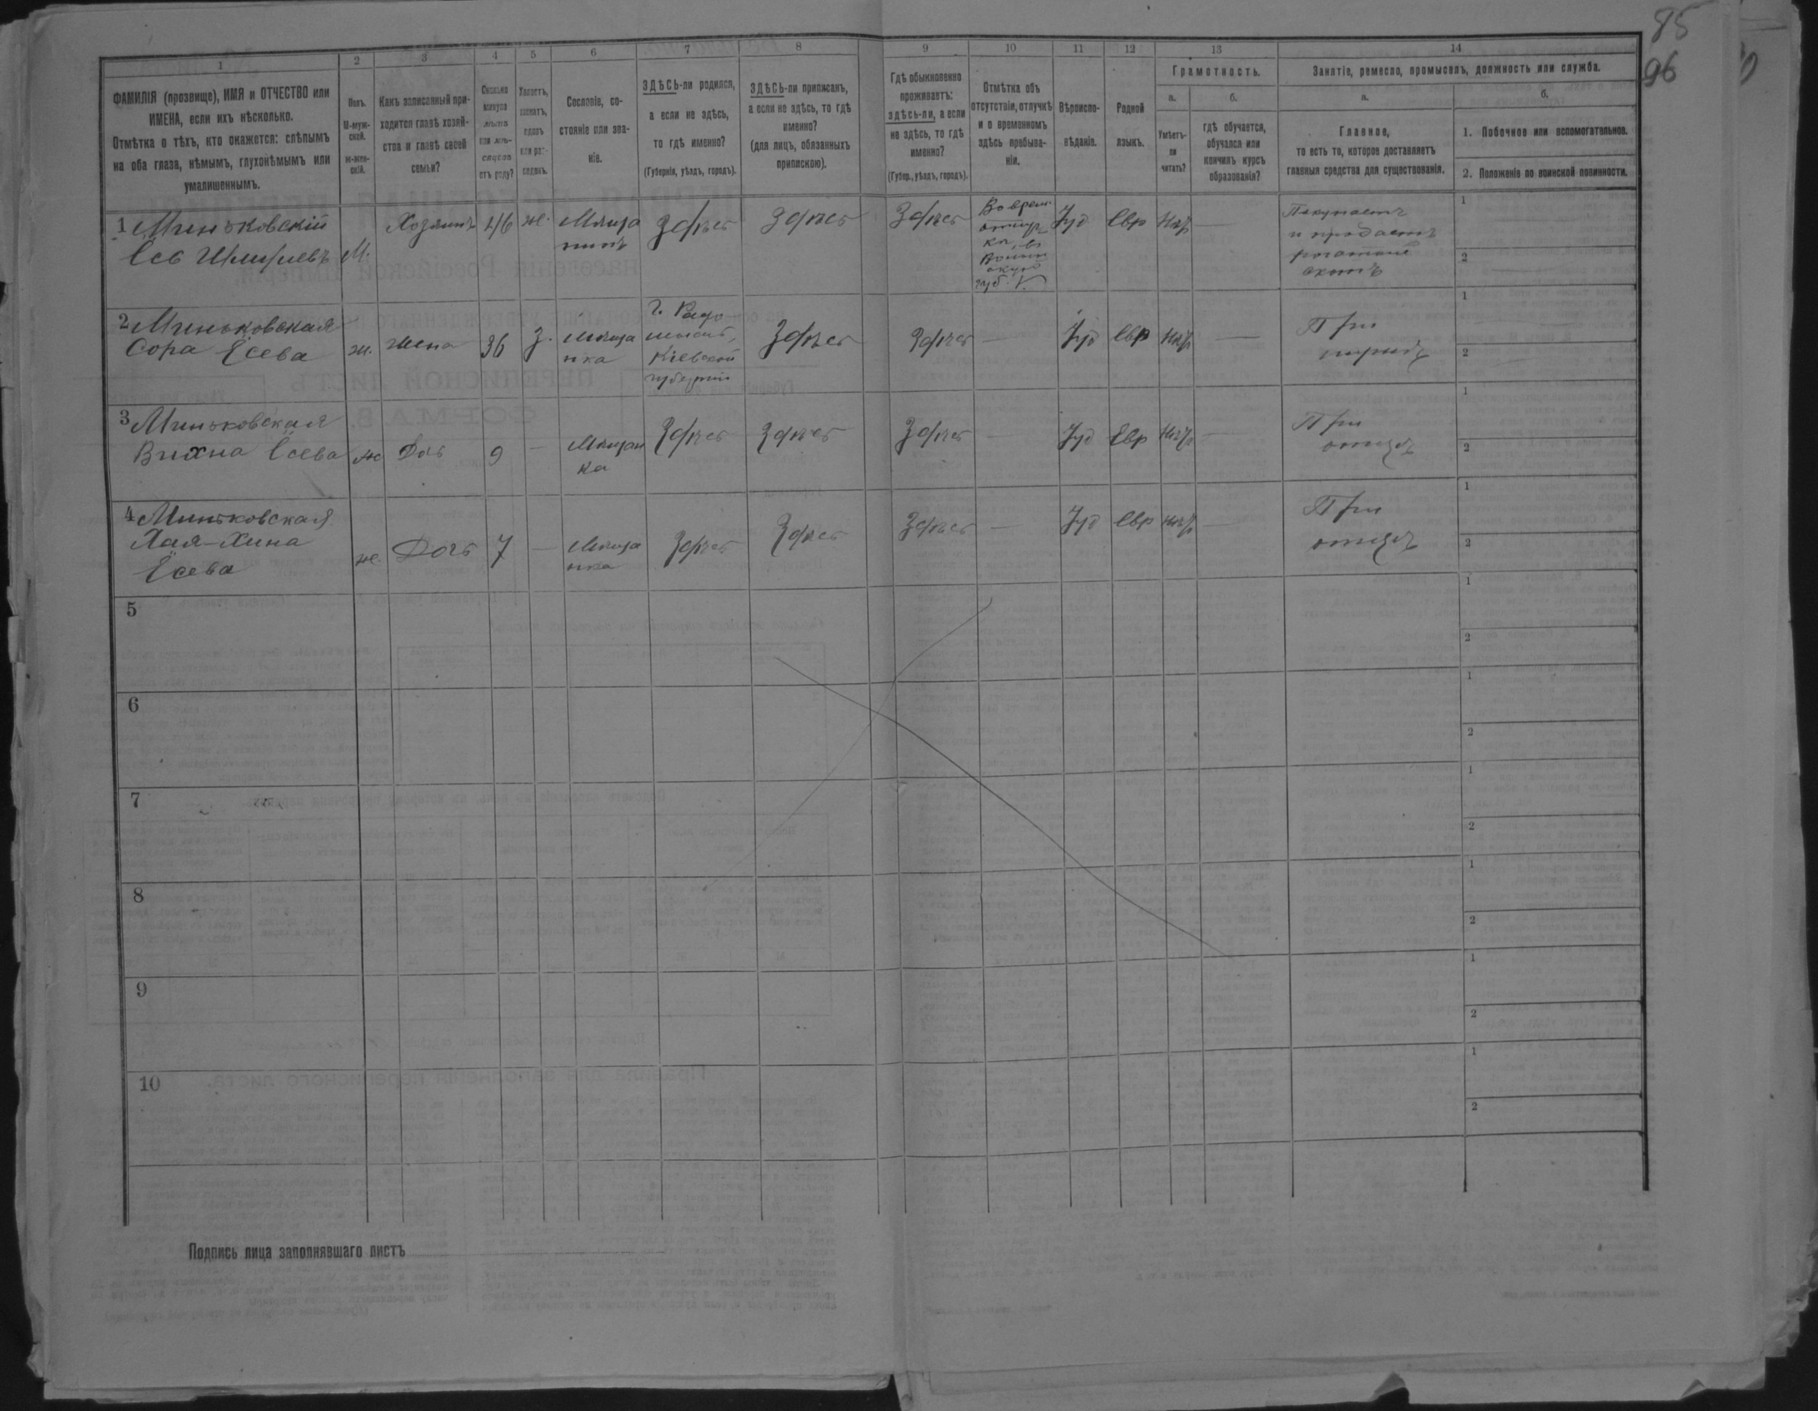 85
96
1 2 3 4 5 6 7 8 9 10 11 12 13 14
ФАМИЛІЯ (прозвище), ИМЯ и ОТЧЕСТВО или
ИМЕНА, если ихъ нѣсколько.
Отмѣтка о тѣхъ, кто окажется: слѣпымъ
на оба глаза, нѣмымъ, глухонѣмымъ или
умалишеннымъ.
Полъ.
М-муж-
ской.
ж-жен-
скій.
Какъ записанный при-
ходится главѣ хозяй-
ства и главѣ своей
семьи?
Сколько
минуло
лѣтъ
или мѣ-
сяцевъ
отъ роду?
Холостъ,
женатъ,
вдовъ
или раз-
веденъ.
Сословіе, со-
стояніе или зва-
ніе.
ЗДѢСЬ-ли родился,
а если не здѣсь,
то гдѣ именно?
(Губернія, уѣздъ, городъ).
ЗДѢСЬ-ли приписанъ,
а если не здѣсь, то гдѣ
именно?
(для лицъ, обязанныхъ
припискою).
Гдѣ обыкновенно
проживаетъ:
здѣсь-ли, а если
не здѣсь, то гдѣ
именно?
(Губер., уѣздъ, городъ).
Отмѣтка объ
отсутствіи, отлучкѣ
и о временномъ
здѣсь пребыва-
ніи.
Вѣроиспо-
вѣданіе.
Родной
языкъ.
Грамотность.
а.
Умѣетъ-
ли
читать?
б.
гдѣ обучается,
обучался или
кончилъ курсъ
образованія?
Занятіе, ремесло, промыселъ, должность или служба.
а.
Главное,
то есть то, которое доставляетъ
главныя средства для существованія.
б.
1. Побочное или вспомогательное.
2. Положеніе по воинской повинности.
1 Миньковскій
М.
Хозяинъ
46
ж.
Мѣща
нинъ
Здѣсь
Здѣсь
Здѣсь
Іуд
Евр
Покупаетъ
и продаетъ
рогатый
скотъ
1
2
2 Миньковская
Сора Ёсева
ж.
жена
36
З.
Мѣща
нка
Кіевской
губерніи
Здѣсь
Здѣсь
—
Іуд
Евр
—
При
мужѣ
1
2
3 Миньковская
Вихна Ёсева
ж
Дочь
9
—
Мѣщан
ка
Здѣсь
Здѣсь
Здѣсь
—
Іуд
Евр
—
При
отцѣ
1
2
4 Миньковская
Хая-Хина
Ёсева
ж.
Дочь
7
—
Мѣща
нка
Здѣсь
Здѣсь
Здѣсь
—
Іуд
Евр
—
При
отцѣ
1
2
5
1
2
6
1
2
7
1
2
8
1
2
9
1
2
10
1
2
Подпись лица заполнявшаго листъ